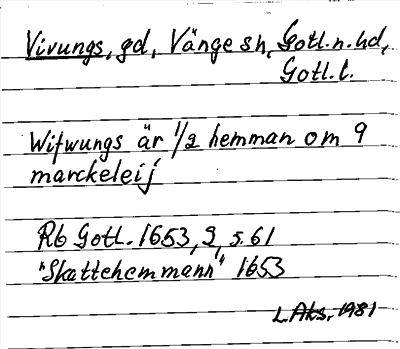 Vivungs, gd, Vänge sn, Gotl. n. hd,
Gotl. l.
Wifwungs är 1/2 hemman om 9
marckeleij
Rb Gotl. 1653, 2, s. 61
"Skattehemmann" 1653
L. Aks. 1981